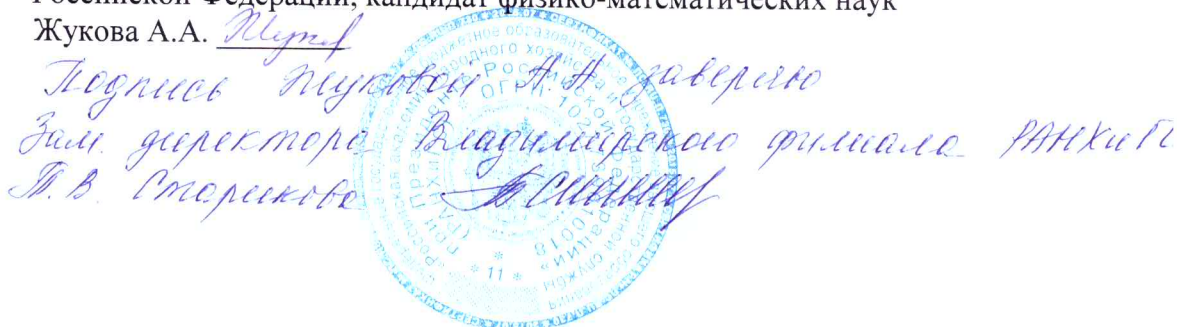 Российской Федерации, кандидат физико-математических наук
Жукова А.А.
Подпись Жуковой А.А заверяю
Зам. директора Владимирского филиала РАНХиГС
Т.В. Старикова
* 11 *